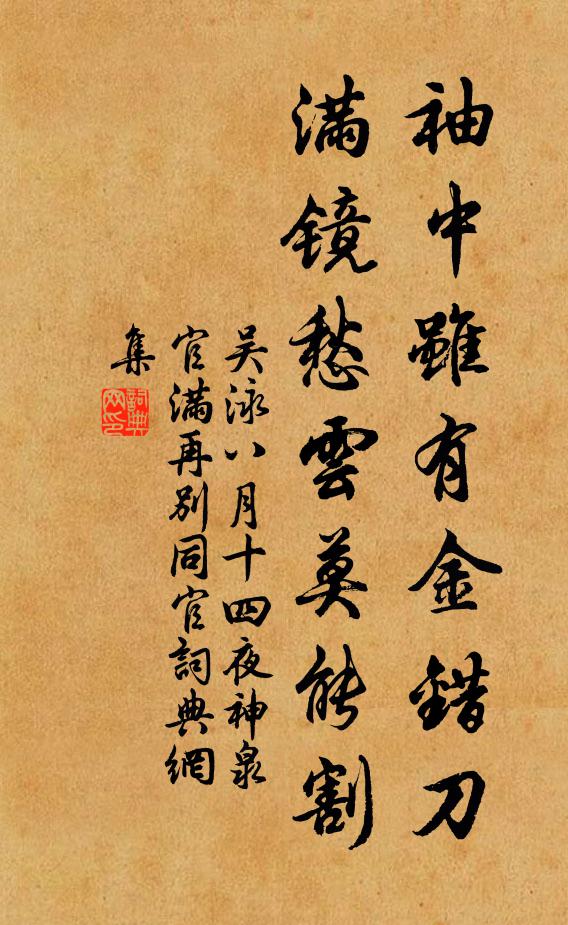 袖中雖有金錯刀
滿鏡愁雲莫能割
吴泳八月十四夜神泉
官滿再別同官詞典網
集
詞典
网印